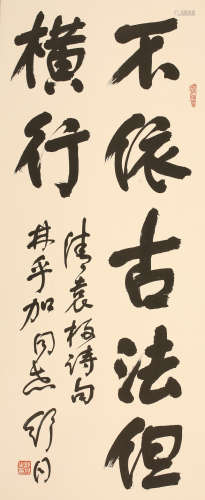 不依古法但
横行
清袁枚诗句
林乎加同志 舒同